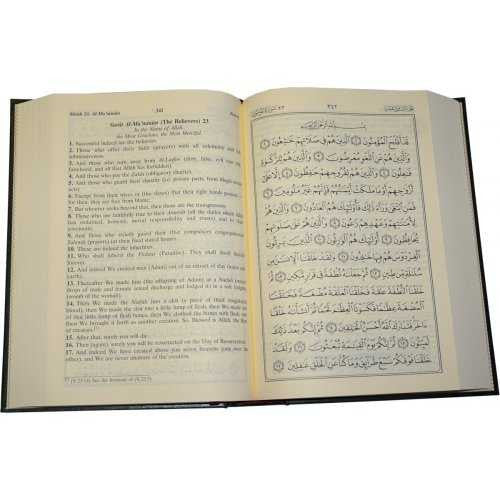 Sûrah 23. Al-Mu'minûn
341
Sûrat Al-Mu'minûn (The Believers) 23
In the Name of Allâh,
the Most Gracious, the Most Merciful.
1. Successful indeed are the believers.
2. Those who offer their Salât (prayers) with all solemnity and full
submissiveness.
3. And those who turn away from Al-Laghw (dirty, false, evil vain talk,
falsehood, and all that Allâh has forbidden).
4. And those who pay the Zakât (obligatory charity).
5. And those who guard their chastity (i.e. private parts, from illegal sexual
acts)
6. Except from their wives or (the slaves) that their right hands possess, —
for then, they are free from blame;
7. But whoever seeks beyond that, then those are the transgressors;
8. Those who are faithfully true to their Amanât (all the duties which Allâh
has ordained, honesty, moral responsibility and trusts) and to their
covenants;
9. And those who strictly guard their (five compulsory congregational)
Salawât (prayers) (at their fixed stated hours).
10. These are indeed the inheritors.
11. Who shall inherit the Firdaus (Paradise). They shall dwell therein
forever.
12. And indeed We created man (Adam) out of an extract of clay (water and
earth).
13. Thereafter We made him (the offspring of Adam) as a Nutfah (mixed
drops of male and female sexual discharge and lodged it) in a safe lodging
(womb of the woman).
14. Then We made the Nutfah into a clot (a piece of thick coagulated
blood), then We made the clot into a little lump of flesh, then We made out
of that little lump of flesh bones, then We clothed the bones with flesh, and
then We brought it forth as another creation. So Blessed is Allâh, the Best
of creators.
15. After that, surely you will die.
16. Then (again), surely you will be resurrected on the Day of Resurrection.
17. And indeed We have created above you seven heavens (one over the
other), and We are never unaware of the creation.
(V.23:14) See the footnote of (V.22:5).
٣٤٢
بِسْمِ اللَّهِ الرَّحْمَٰنِ الرَّحِيمِ
قَدْ أَفْلَحَ الْمُؤْمِنُونَ ١ الَّذِينَ هُمْ فِي صَلَاتِهِمْ خَاشِعُونَ ٢
وَالَّذِينَ هُمْ عَنِ اللَّغْوِ مُعْرِضُونَ ٣ وَالَّذِينَ هُمْ لِلزَّكَوٰةِ
فَاعِلُونَ ٤ وَالَّذِينَ هُمْ لِفُرُوجِهِمْ حَافِظُونَ ٥ إِلَّا عَلَىٰ
أَزْوَاجِهِمْ أَوْ مَا مَلَكَتْ أَيْمَانُهُمْ فَإِنَّهُمْ غَيْرُ مَلُومِينَ ٦
فَمَنِ ابْتَغَىٰ وَرَاءَ ذَٰلِكَ فَأُولَٰئِكَ هُمُ الْعَادُونَ ٧ وَالَّذِينَ هُمْ
لِأَمَانَاتِهِمْ وَعَهْدِهِمْ رَاعُونَ ٨ وَالَّذِينَ هُمْ عَلَىٰ صَلَوَاتِهِمْ
يُحَافِظُونَ ٩ أُولَٰئِكَ هُمُ الْوَارِثُونَ ١٠ الَّذِينَ يَرِثُونَ
الْفِرْدَوْسَ هُمْ فِيهَا خَالِدُونَ ١١ وَلَقَدْ خَلَقْنَا الْإِنسَانَ مِن
سُلَالَةٍ مِّن طِينٍ ١٢ ثُمَّ جَعَلْنَاهُ نُطْفَةً فِي قَرَارٍ مَّكِينٍ ١٣ ثُمَّ
خَلَقْنَا النُّطْفَةَ عَلَقَةً فَخَلَقْنَا الْعَلَقَةَ مُضْغَةً فَخَلَقْنَا
الْمُضْغَةَ عِظَامًا فَكَسَوْنَا الْعِظَامَ لَحْمًا ثُمَّ أَنشَأْنَاهُ خَلْقًا
آخَرَ فَتَبَارَكَ اللَّهُ أَحْسَنُ الْخَالِقِينَ ١٤ ثُمَّ إِنَّكُم بَعْدَ ذَٰلِكَ
لَمَيِّتُونَ ١٥ ثُمَّ إِنَّكُمْ يَوْمَ الْقِيَامَةِ تُبْعَثُونَ ١٦ وَلَقَدْ
خَلَقْنَا فَوْقَكُمْ سَبْعَ طَرَائِقَ وَمَا كُنَّا عَنِ الْخَلْقِ غَافِلِينَ ١٧